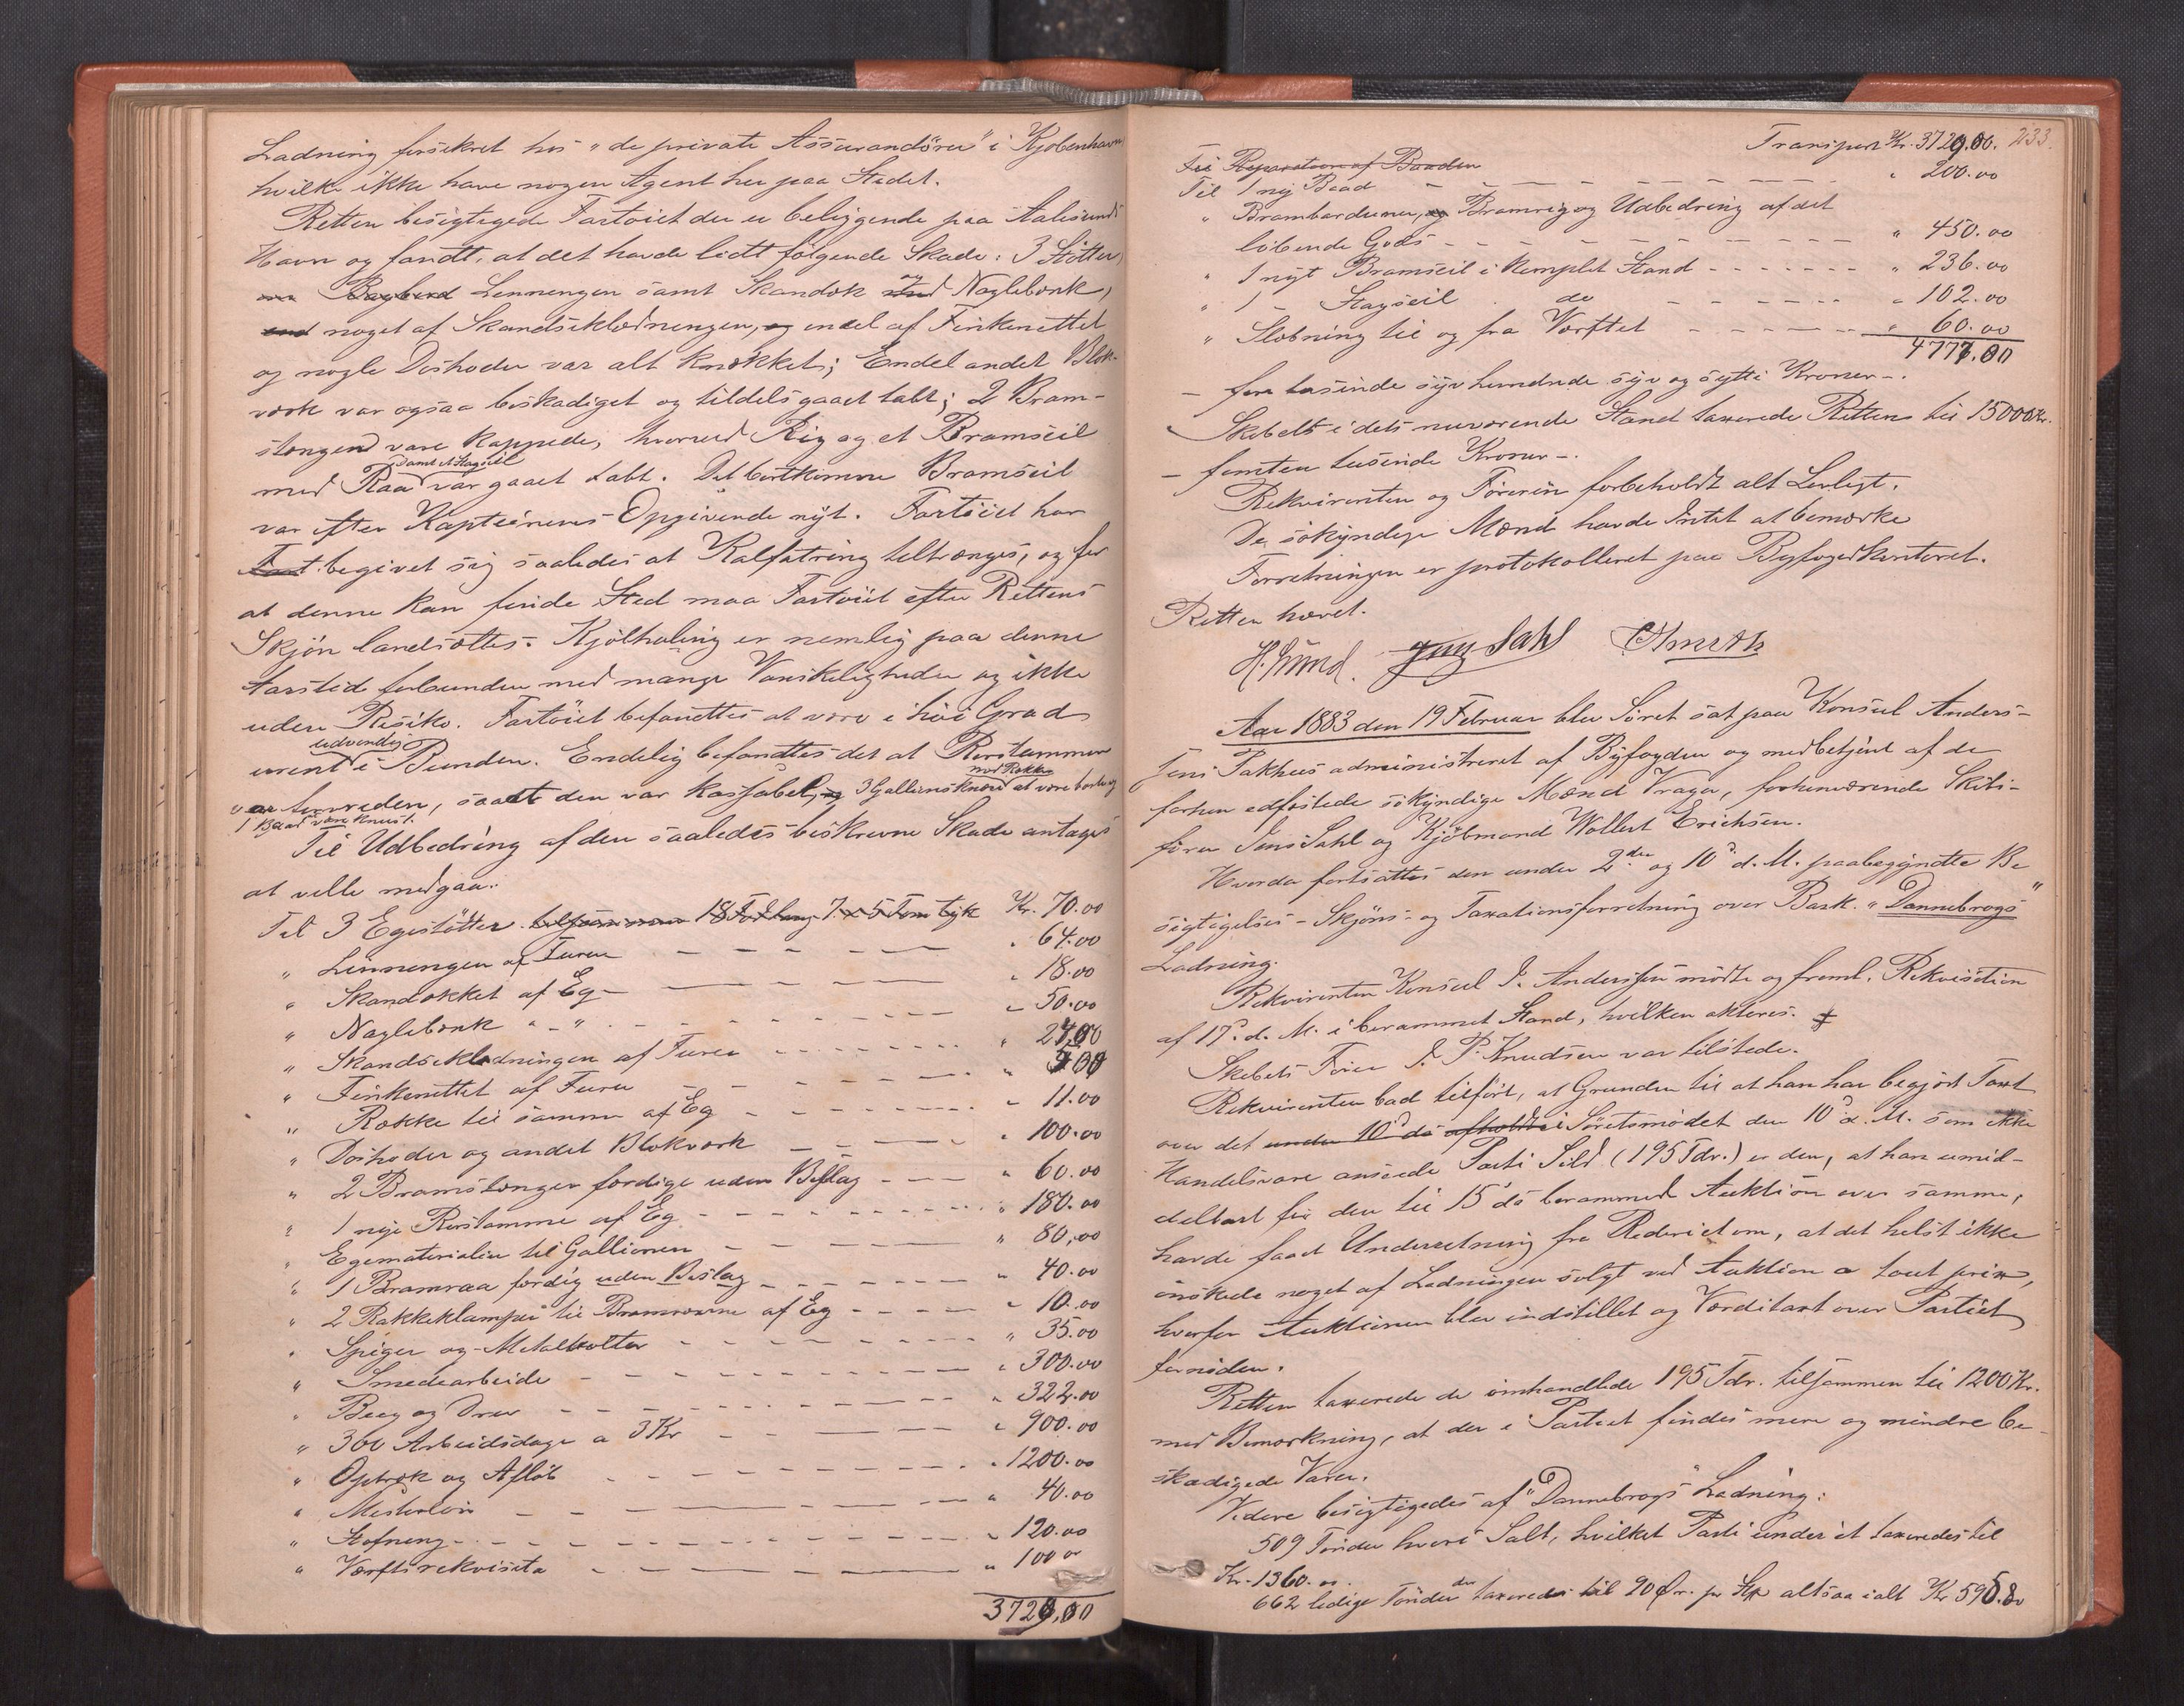 Ladning forsikret hos "de private Assurandörer" i Kjöbenhavn
hvilke ikke have nogen Agent her paa Stedet.
Retten besigtigede Fartöiet der er beliggende paa Aalesunds
Havn og fandt, at det havde lidt fölgende Skade: 3 Stötter,
Lenningen samt Skandæk og Naglebænk,
noget af Skandseklædningen, og endel af Finkenettet
og nogle Doshoder var alt knækket; Endel andet Blok-
værk var ogsaa beskadiget og tildels gaaet tabt; 2 Bram-
stænger vare kappede, hvorved Rig og et Bramseil
med Raa samt et Stagseil var gaaet tabt. Det bortkomne Bramseil
var efter Kapteinens Opgivende nyt. Fartöiet har
begivet sig saaledes at Kalfatring tiltrænges, og for
at denne kan finde Sted maa Fartöiet efter Rettens
Skjön landsættes. Kjölhaling er nemlig paa denne
Aarstid forbunden med mange Vanskeligheder og ikke
uden Risiko. Fartöiet befandtes at være i höi Grad
urent udvendig i Bunden. Endelig befandtes det at Rorstammen
var forvreden, saa at den var kassabel, 3 Gallions knær med Rækker at være borte og
1 Baad være knust.
Til Udbedring af den saaledes beskrevne Skade antages
at ville medgaa:
Til 3 Egestötter 18 Fod lang 7 x 5 Tom tyk Kr. 70.00
" Lenningen af Furu " 64.00
" Skandækket af Eg " 18.00
" Naglebænk " - " " 50.00
" Skandseklædningen af Furu "
" Finkenettet af Furu "
" Række til samme af Eg " 11.00
" Doshoder og andet Blokværk " 100.00
" 2 Bramstænger færdige uden Beslag " 60.00
" 1 nye Rorstamme af Eg " 180.00
" Egematerialier til Gallionen " 80,00
" 1 Bramraa færdig uden Beslag " 40.00
" 2 Rakkeklamper til Bramraaerne af Eg " 10.00
" Spiger og Metalbolter " 35.00
" Smedearbeide " 300.00
" Beeg og Drev " 322.00
" 300 Arbeidsdage a 3 Kr " 900.00
" Optræk og Afløb " 1200.00
" Mesterlön " 40.00
" Stofning " 120.00
" Værftsrekvisita " 100 00
3729,00
233.
Transport Kr. 3729.00.
Til Reparation af Baaden
Til 1 ny Baad " 200.00
" Brambarduner, Bramrig og Udbedring af det
löbende Gods " 450.00
" 1 nyt Bramseil i komplet Stand " 236.00
" 1 - Stagseil do " 102.00
" Slæbning til og fra Værftet " 60.00
4777.00
- fire tusinde syv hundrede syv og sytti Kroner -.
Skibets i dets nuværende Stand taxerede Retten til 15000 Kr.
- femten tusinde Kroner -.
Rekvirenten og Föreren forbeholdt alt Lovligt.
De sökyndige Mænd havde Intet at bemærke
Forretningen er protokolleret paa Byfogedkontoret.
Retten hævet.
H. Lund. Jens Dahl
Aar 1883 den 19 Februar blev Söret sat paa Konsul Anders-
sens Pakhus administreret af Byfogden og medbetjent af de
forhen edfæstede sökyndige Mænd Vrager, forhenværende Skibs-
förer Jens Dahl og Kjöbmand Wollert Erichsen.
Hvorda fortsattes den under 2den og 10de d. M. paabegyndte Be
sigtigelses- Skjöns- og Taxationsforretning over Bark. "Dannebrogs"
Ladning.
Rekvirenten Konsul I. Anderssen mödte og freml. Rekvisition
af 17de d. M. i berammet Stand, hvilken akteres.
Skibets Förer I. P. Knudsen var tilstede.
Rekvirenten bad tilfört, at Grunden til at han har begjært Taxt
over det under 10de ds afholdte i Söretsmödet den 10de d. M. som ikke
Handelsvare anseede Parti Sild (195 Tdr.) er den, at han umid-
delbart för den til 15de ds berammed Auktion over samme,
havde faaet Underretning fra Rederiet om, at det helst ikke
önskede noget af Ladningen solgt ved Auktion a tout prix,
hvorfor Auktionen blev indstillet og Værditaxt over Partiet
fornöden.
Retten taxerede de omhandlede 195 Tdr. tilsammen til 1200 Kr.
med Bemærkning, at der i Partiet findes mere og mindre be-
skadigede Varer.
Videre besigtigedes af "Dannebrogs" Ladning:
509 Tönder hvori Salt, hvilket Parti under et taxeredes til
Kr. 1360.00.
662 ledige Tönder der taxeredes til 90 Öre pr Stk altsaa ialt Kr 595.80